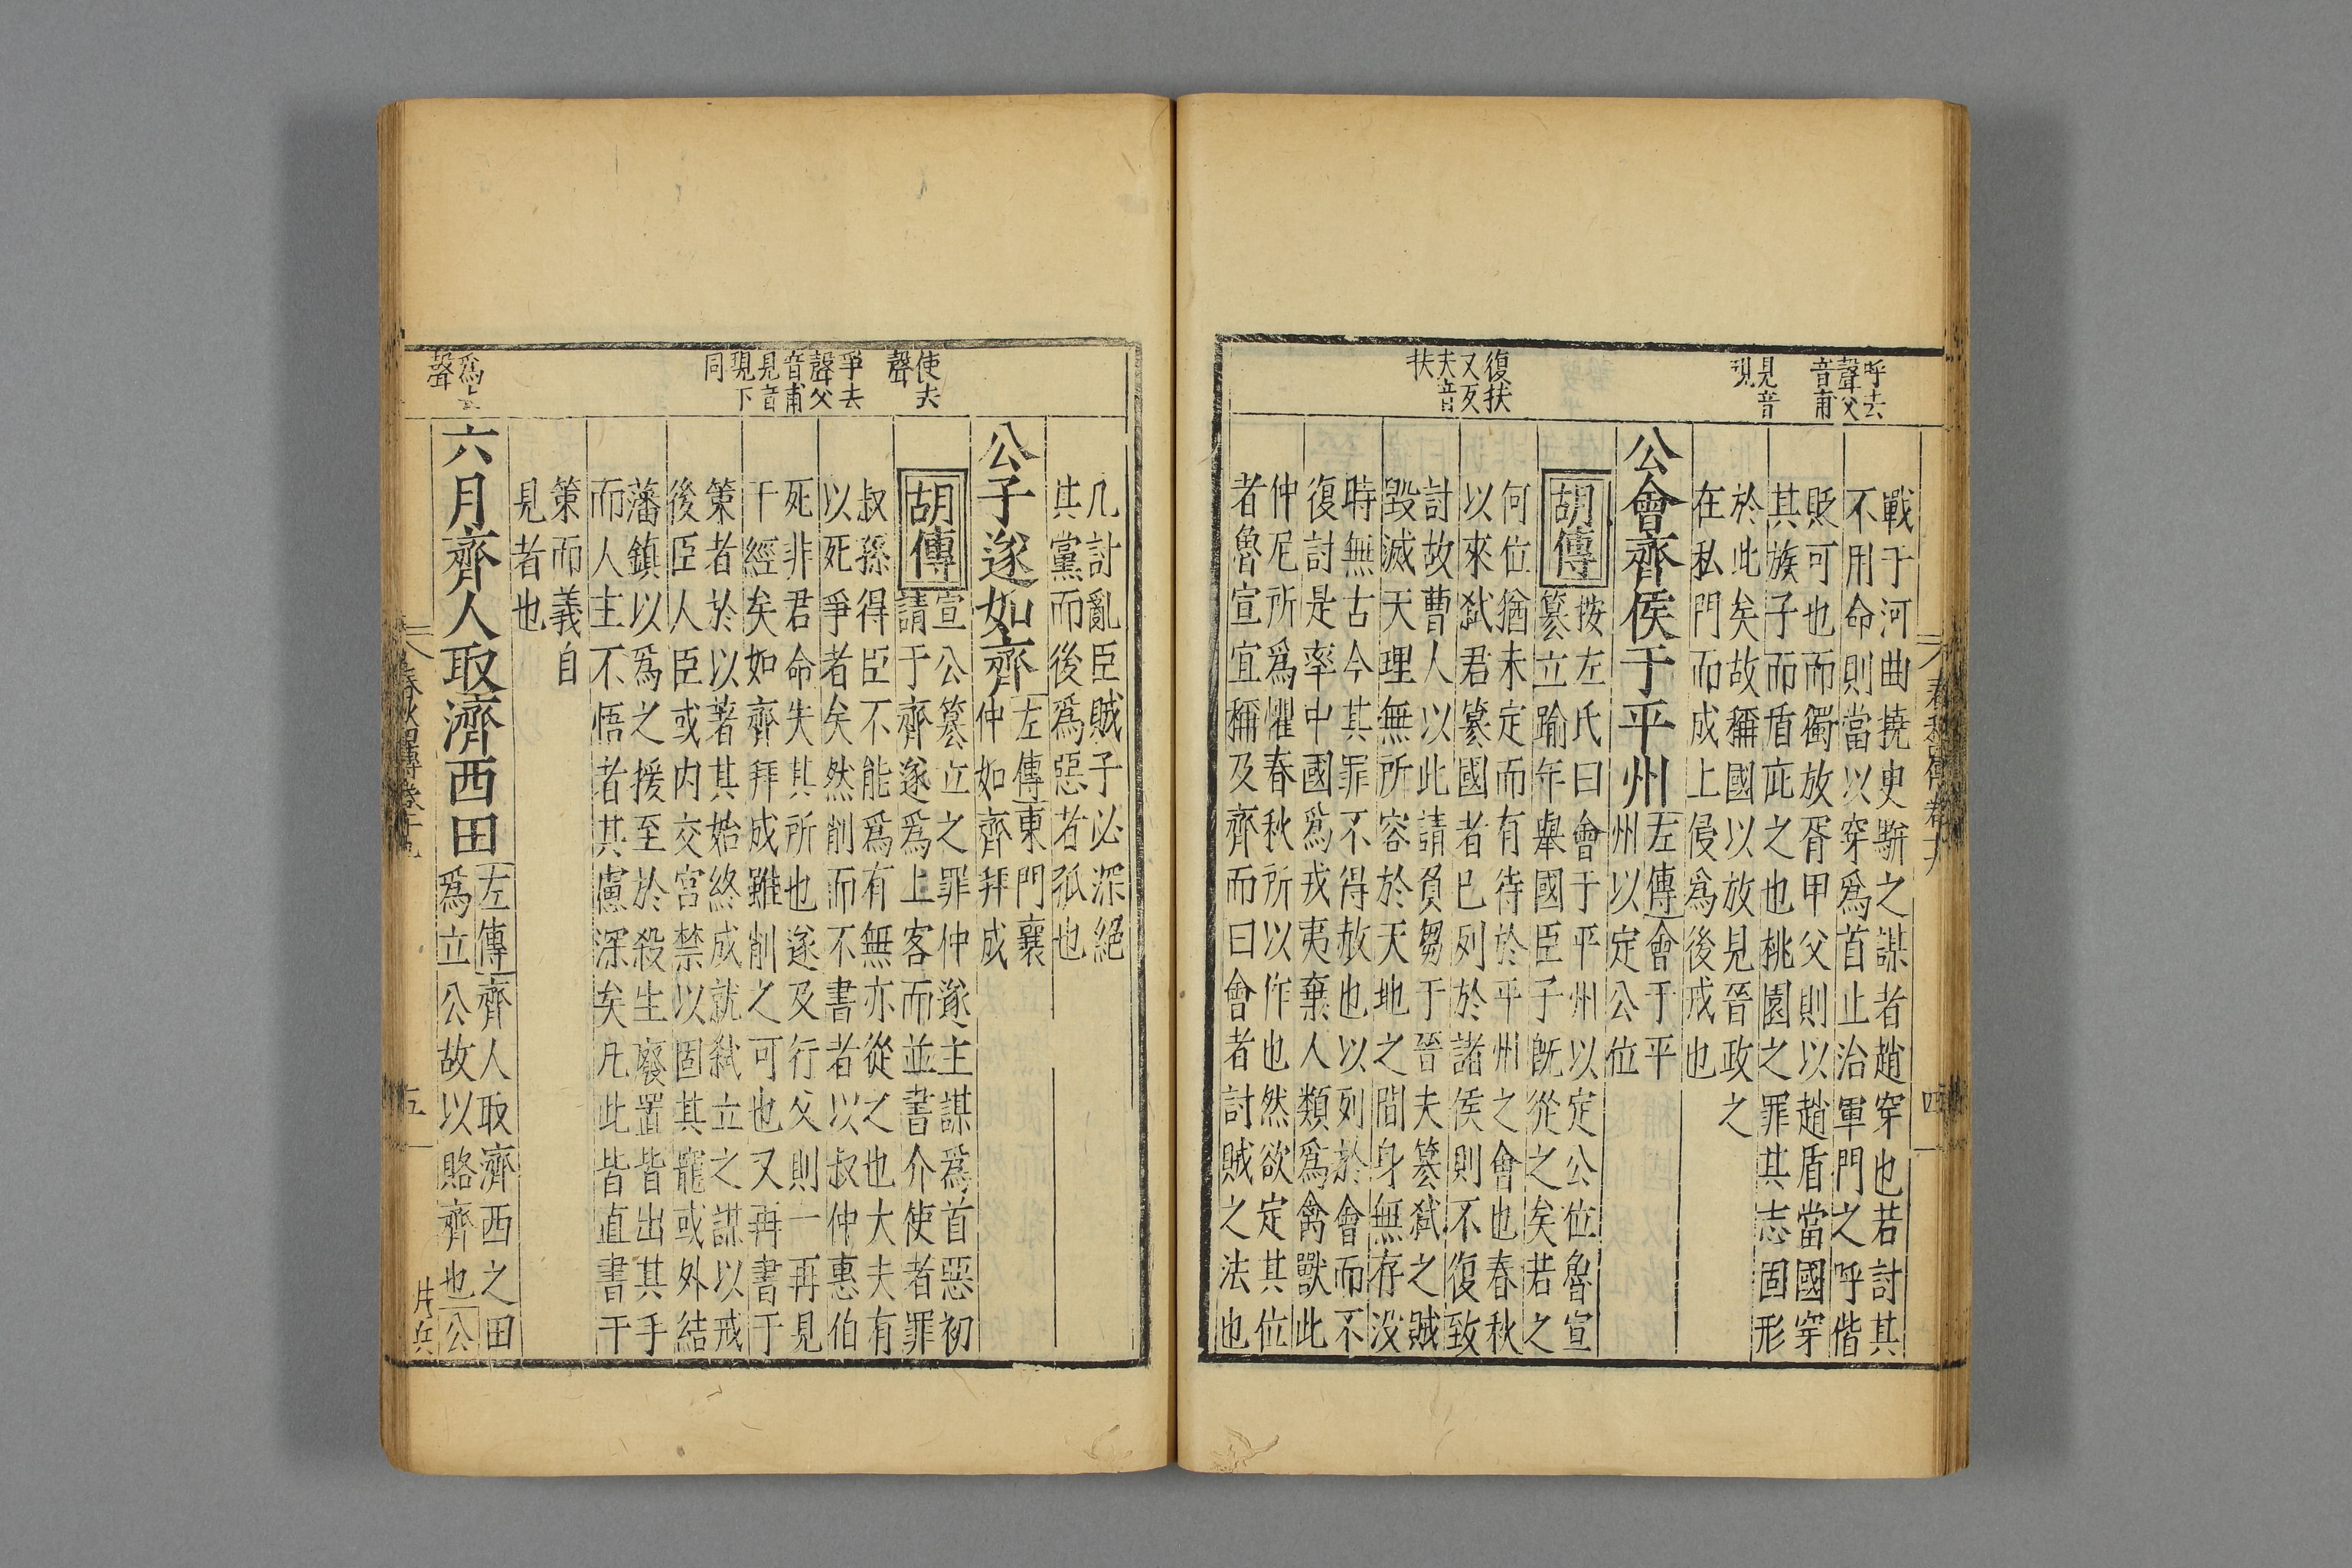 呼去
聲父
音甫
見音
現
復扶
又反
夫音
扶
戰于河曲撓臾駢之謀者趙穿也若討其
不用命則當以穿爲首止治軍門之呼偕
貶可也而獨放胥甲父則以趙盾當國穿
其族子而盾庇之也桃園之罪其志固形
於此矣故稱國以放見晉政之
在私門而成上侵爲後戒也
公會齊侯于平州
左傳會于平
州以定公位
胡傳
按左氏曰會于平州以定公位魯宣
篡立踰年舉國臣子旣從之矣若之
何位猶未定而有待於平州之會也春秋
以來弑君篡國者已列於諸侯則不復致
討故曹人以此請負芻于晉夫篡弑之賊
毀滅天理無所容於天地之間身無存沒
時無古今其罪不得赦也以列於會而不
復討是率中國爲戎夷棄人類爲禽獸此
仲尼所爲懼春秋所以作也然欲定其位
者魯宣宜稱及齊而曰會者討賊之法也
四
使去
聲
爭去
聲父
音甫
見音
現下
同
爲去
聲
凡討亂臣賊子必深絕
其黨而後爲惡者孤也
公子遂如齊
左傳東門襄
仲如齊拜成
胡傳
宣公篡立之罪仲遂主謀爲首惡初
請于齊遂爲上客而並書介使者罪
叔孫得臣不能爲有無亦從之也大夫有
以死爭者矣然削而不書者以叔仲惠伯
死非君命失其所也遂及行父則一再見
于經矣如齊拜成雖削之可也又再書于
策者於以著其始終成就弑立之謀以戒
後臣人臣或內交宮禁以固其寵或外結
藩鎮以爲之援至於殺生廢置皆出其手
而人主不悟者其慮深矣凡此皆直書于
策而義自
見者也
六月齊人取濟西田
左傳齊人取濟西之田
爲立公故以賂齊也公
春秋四傳卷十九
五